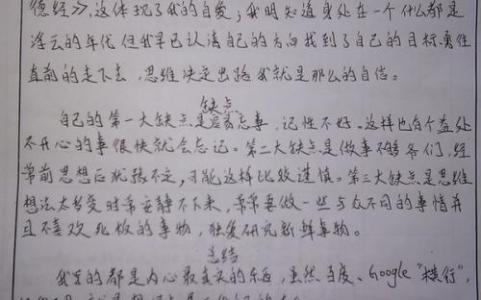 德经》,这体现了我的自爱;我明知道身处在一个什么都是
浮云的年代,但我早已认清自己的方向找到了自己的目标勇往
直前的走下去,思维决定出路我就是那么的自信。
缺点
自己的第一大缺点是容易忘事,记性不好。这样也有个益处
不开心的事很快就会忘记。第二大缺点是做事不够爷们,经
常前思想后犹豫不定,可能这样比较谨慎。第三大缺点是思维
想法太多变时常安静不下来,常常要做一些与众不同的事情并
且不喜欢死板的事物,独爱研究新鲜事物。
总结
我写的都是内心最真实的东西,虽然百度、Google"横行",